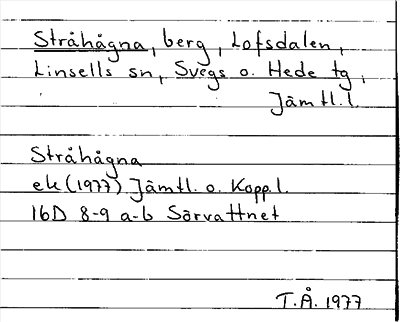 Stråhågna, berg, Lofsdalen,
Linsells sn, Svegs o. Hede tg,
Jämtl.l.
Stråhågna
ek (1977) Jämtl. o. Kopp.l.
16D 8-9 a-b Sörvattnet
T.Å. 1977